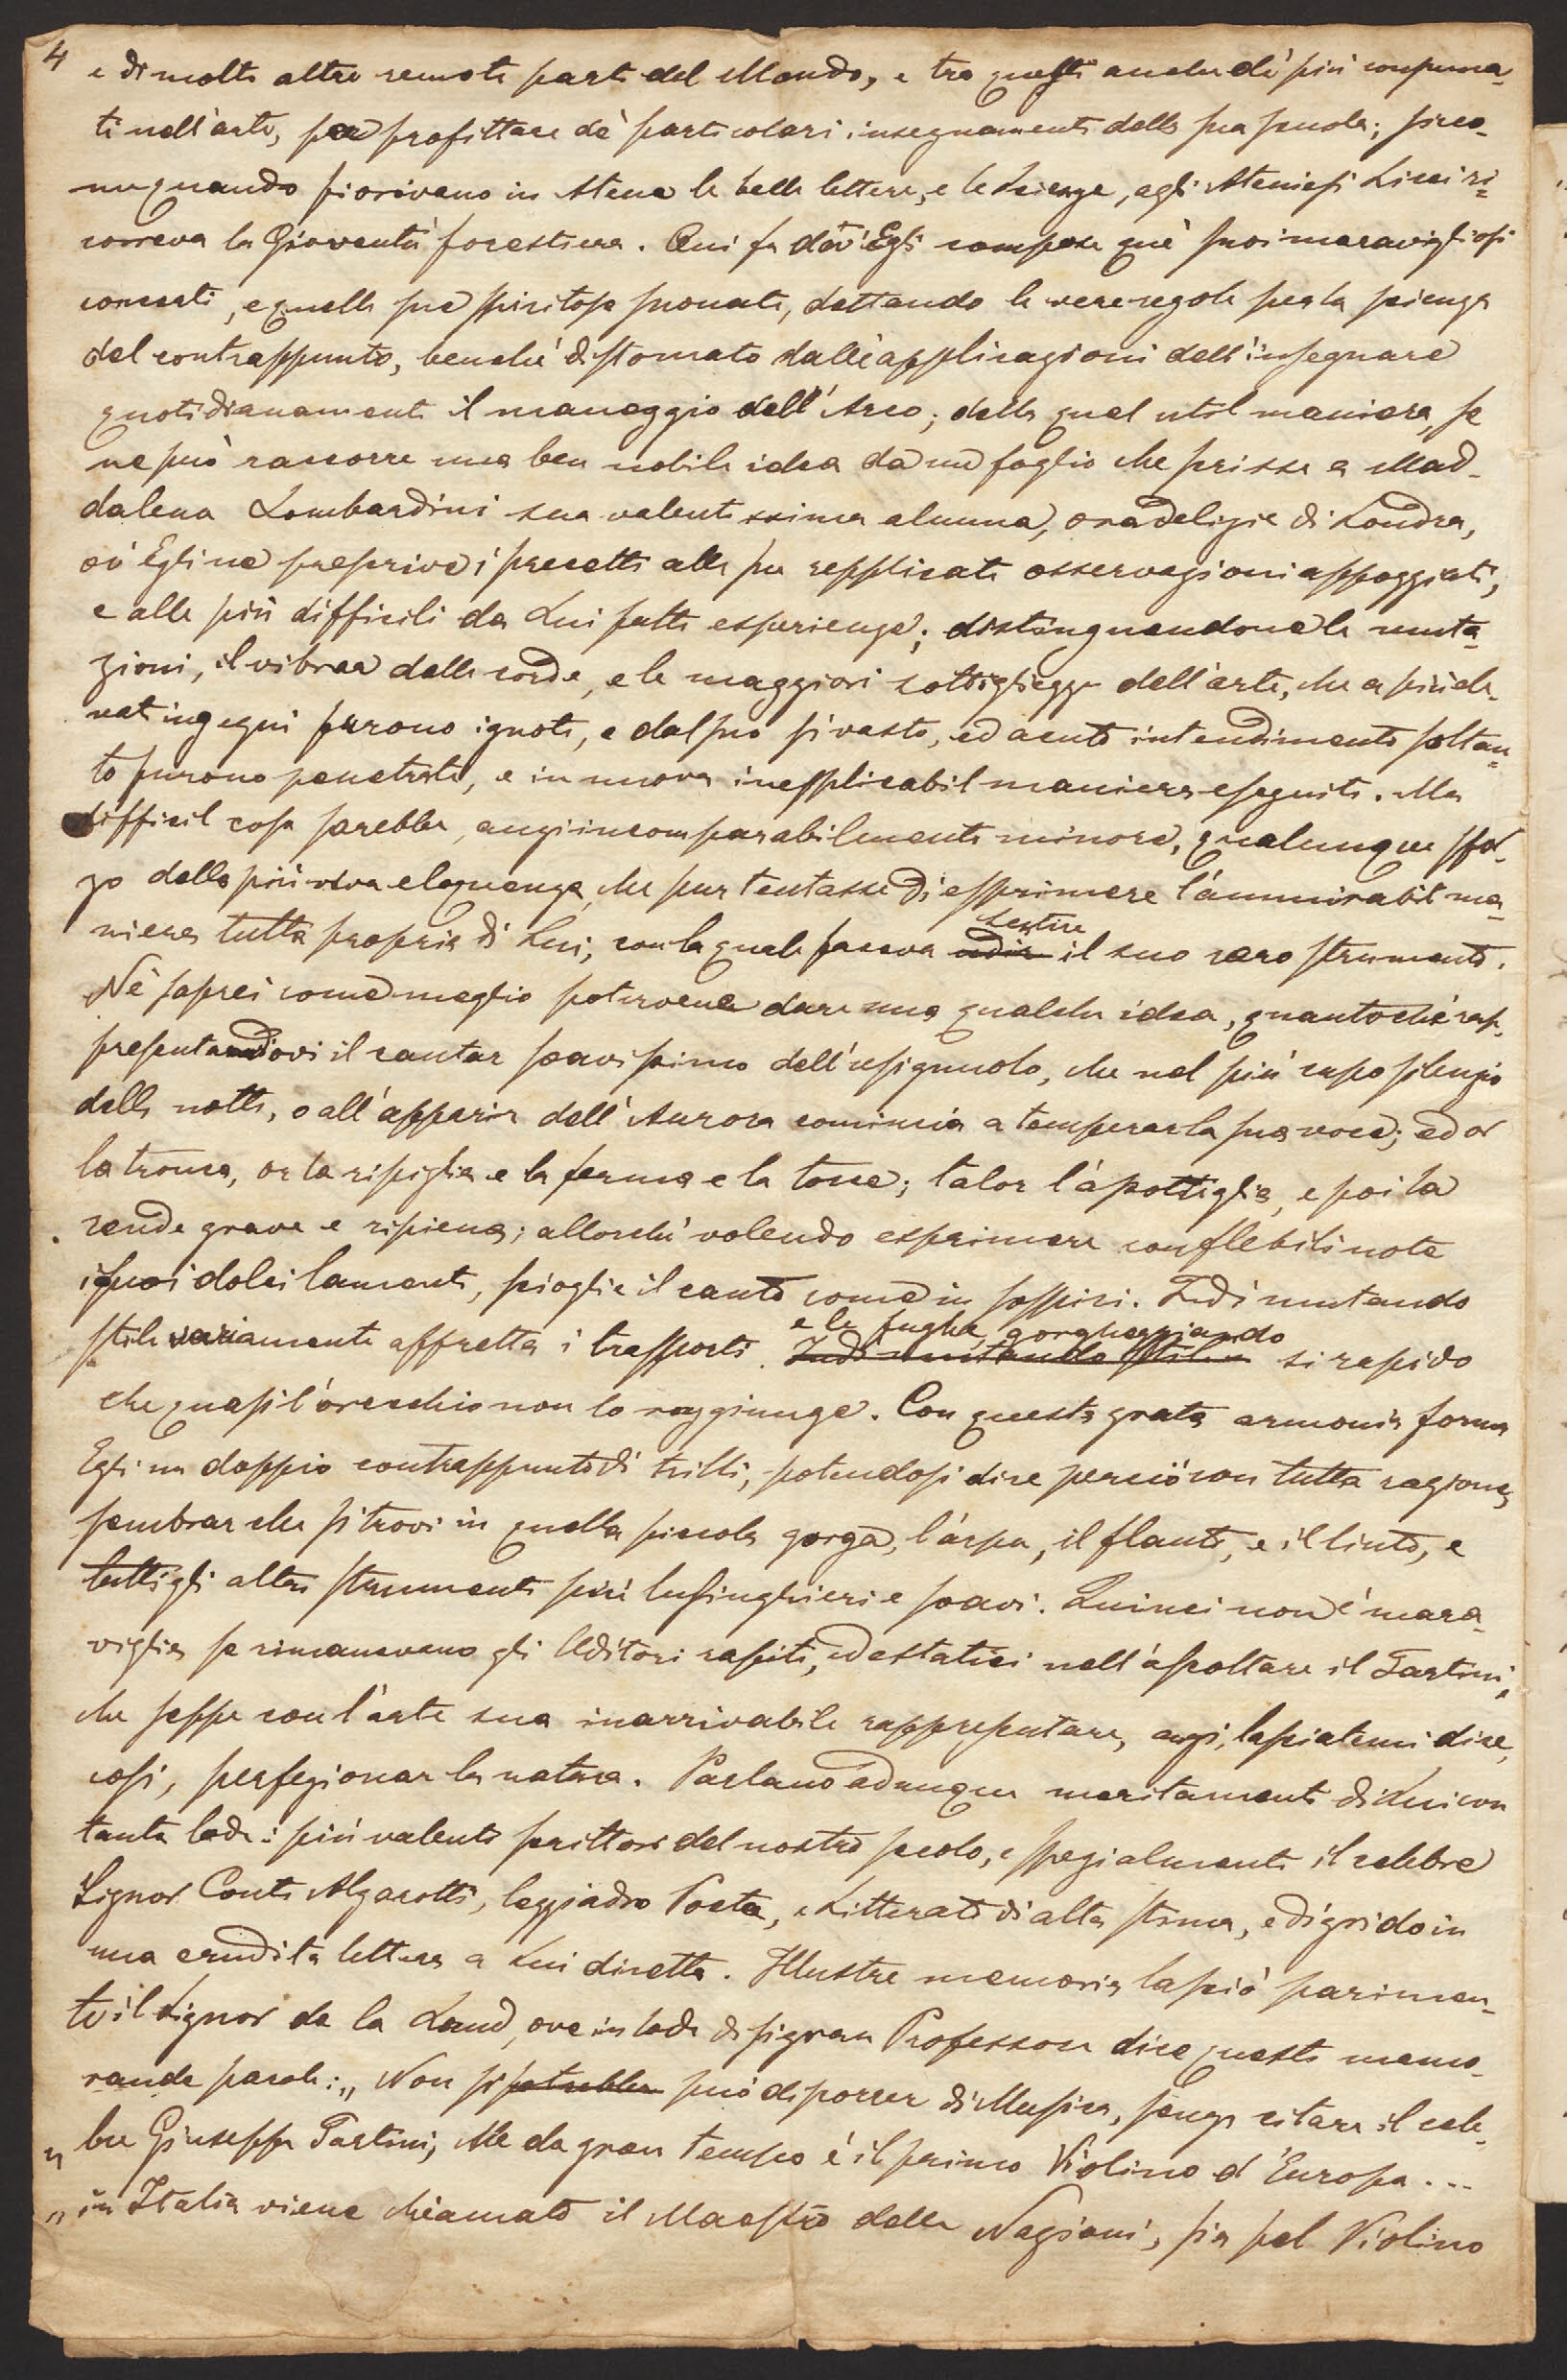 4
e di molte altre remote parti del Mondo, e tra questi anche de' più consuma-
ti nell'arte, per profittare de' particolari insegnamenti della sua scuola; sicco-
me quando fiorivano in Atene le belle lettere, e le Scienze, agli Ateniesi Licei ri-
correva la Gioventù forestiera. Qui fu dov'Egli compose que' suoi maravigliosi
concerti, e quelle sue spiritose suonate, dettando le vere regole per la scienza
del contrappunto, benchè distornato dalle applicazioni dell'insegnare
quotidianamente il maneggio dell'Arco; della qual util maniera, se
ne può raccorre una ben nobile idea da un foglio che scrisse a Mad-
dalena Lombardini sua valentissima alunna, ora delizie di Londra,
ov'Egli ne prescrive i precetti alle sue replicate osservazioni appoggiati,
e alle più difficili da Lui fatte esperienze; distinguendone le muta-
zioni, il vibrar delle corde, e le maggiori sottigliezze dell'arte, che a più ele-
vati ingegni furono ignote, e dal suo sì vasto, ed acuto intendimento soltan-
to furono penetrate, e in nuova inesplicabil maniera eseguite. Ma
difficil cosa sarebbe, anzi incomparabilmente minore, qualunque sfor-
zo della più viva eloquenza, che pur tentasse di esprimere l'ammirabil ma-
niera tutta propria di Lui, con la quale faceva udir sentire il suo raro strumento.
Nè saprei come meglio potervene dare una qualche idea, quantochè rap-
presentandovi il cantar soavissimo dell'usignuolo, che nel più cupo silenzio
della notte, o all'apparir dell'Aurora comincia a temperar la sua voce; ed or
la tronca, or la ripiglia e la ferma e la torce; talor l'assottiglia, e poi la
rende grave e ripiena; allorchè volendo esprimere con flebili note
i suoi dolci lamenti, scioglie il canto come in sospiri. Indi mutando
e le fughe, gorgheggiando
stile variamente affretta i trasporti. Indi mutando stile si rapido
che quasi l'orecchio non lo raggiunge. Con questa grata armonia forma
Egli un doppio contrappunto di trilli, potendosi dire perciò con tutta ragione,
sembrar che si trovi in quella piccola gorga, l'arpa, il flauto, e il liuto, e
tutti gli altri strumenti più lusinghieri e soavi. Quinci non è mara-
viglia se rimanevano gli Uditori rapiti, ed estatici nell'ascoltare il Tartini,
che seppe con l'arte sua inarrivabile rappresentare, anzi, lasciatemi dire,
così, perfezionar la natura. Parlano adunque meritamente di Lui con
tanta lode i più valenti scrittori del nostro secolo, e spezialmente il celebre
Signor Conte Algarotti, leggiadro Poeta, e Litterato di alta stima, e di grido in
una erudita lettera a Lui diretta. Illustre memoria lasciò parimen-
te il Signor de la Land, ove in lode di sì gran Professore dice queste memo-
rande parole: „ Non si potrebbe può discorrer di Musica, senza citare il cele-
„ bre Giuseppe Tartini, che da gran tempo è il primo Violino d'Europa...
„ in Italia viene chiamato il Maestro delle Nazioni, sia pel Violino